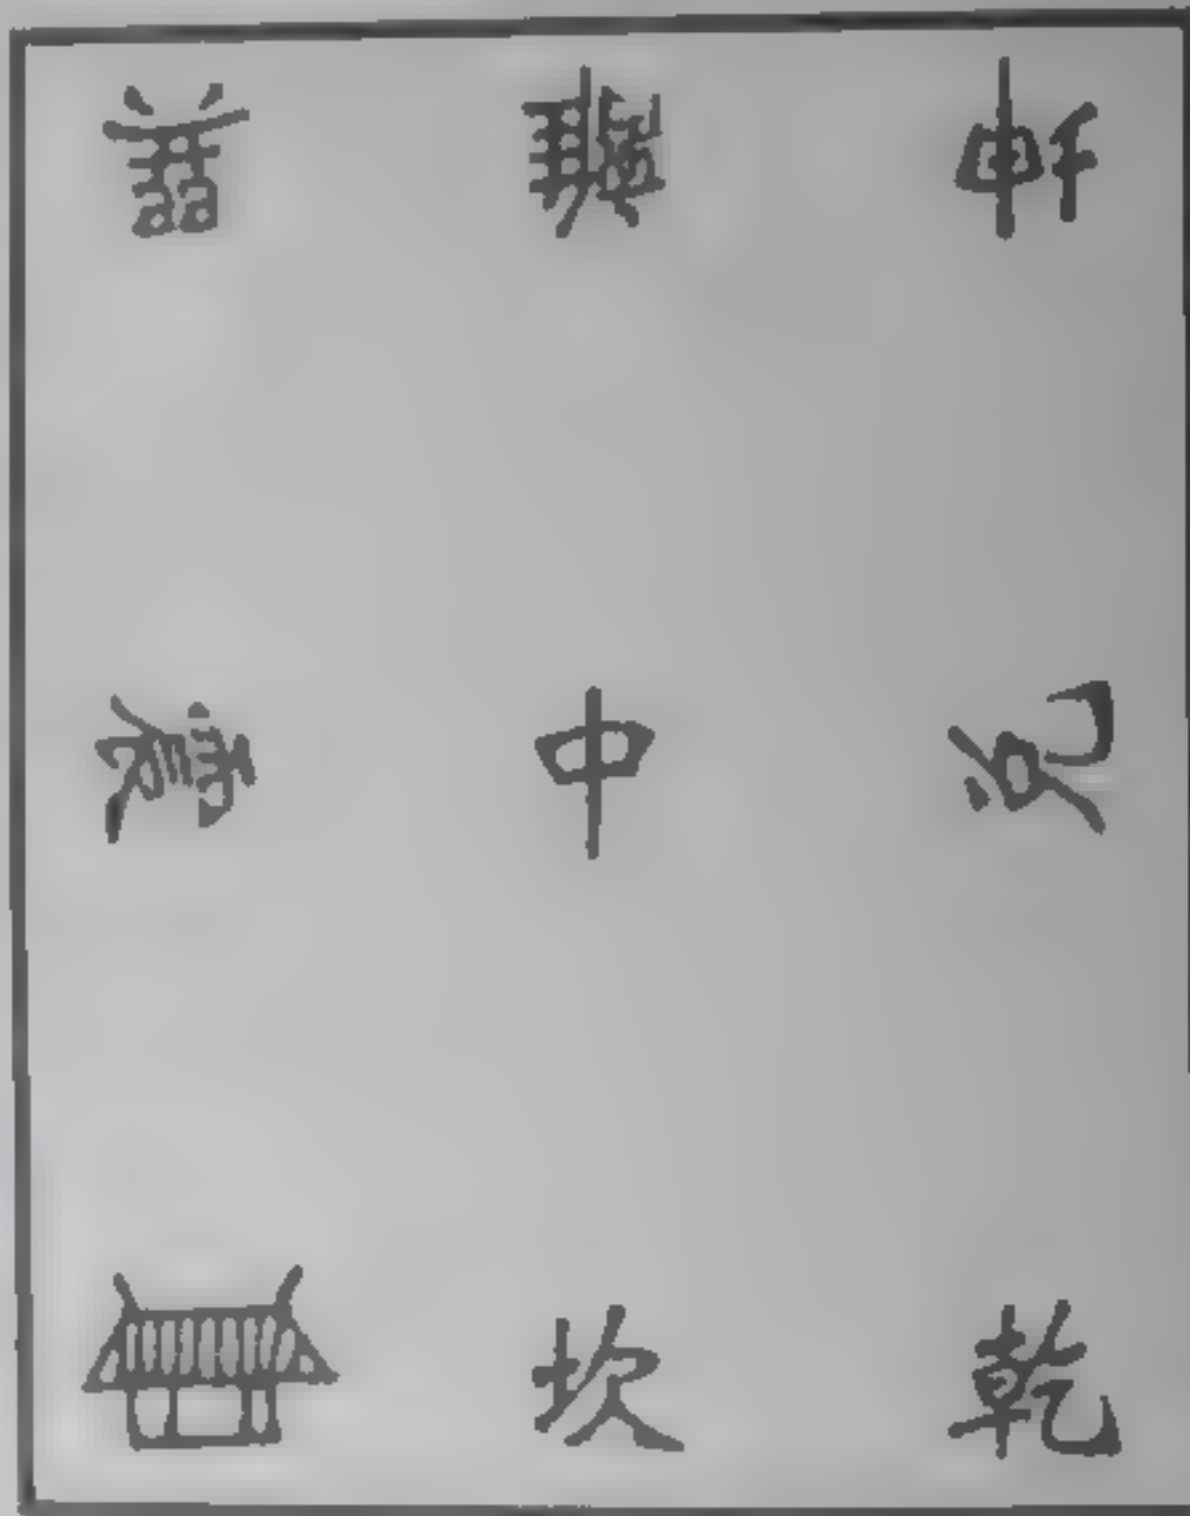 巽 離 坤
震 中 兌
坎 乾